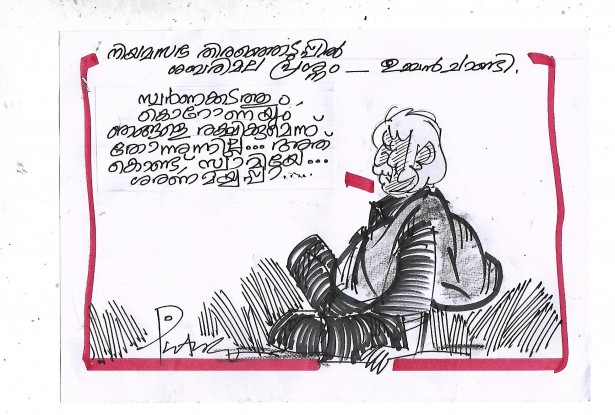 നിയമസഭ തിരഞ്ഞെടുപ്പിൽ
ശബരിമല പ്രശ്നം — ഉമ്മൻ ചാണ്ടി.
സ്വർണക്കടത്തും,
കൊറോണയും
ഞങ്ങളെ രക്ഷിക്കുമെന്ന്
തോന്നുന്നില്ല... അത
കൊണ്ട്, സ്വാമിയേ...
ശരണമയ്യപ്പാ.....